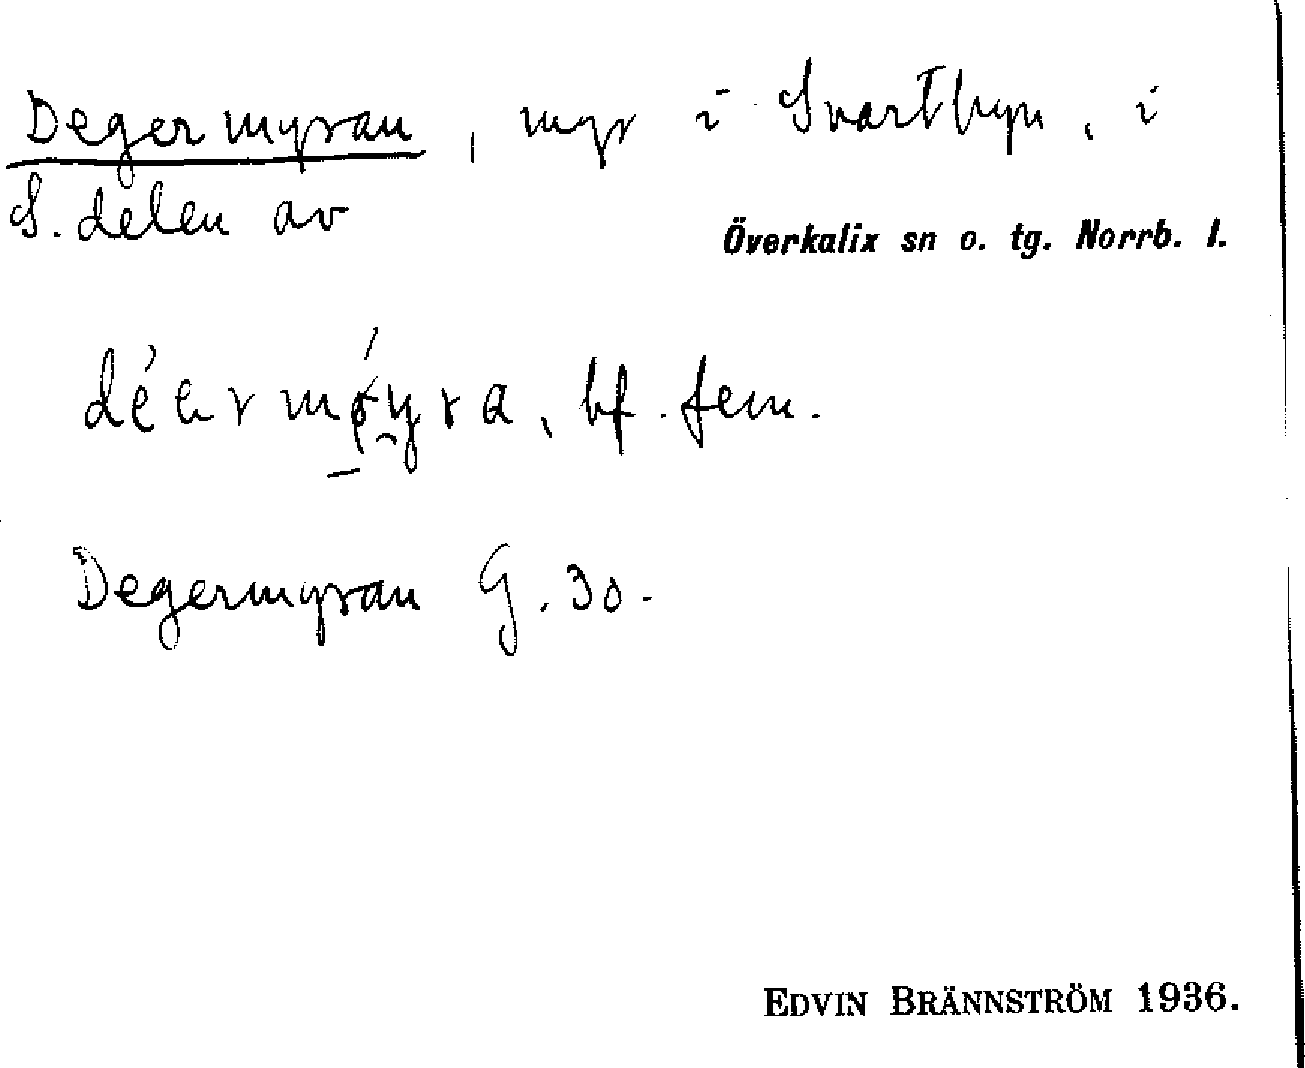 Degermyran, myr i Svartbyn, i
S. delen av
Överkalix sn o. tg. Norrb. l.
bf. fem.
Degermyran G. 30.
EDVIN BRÄNNSTRÖM 1936.